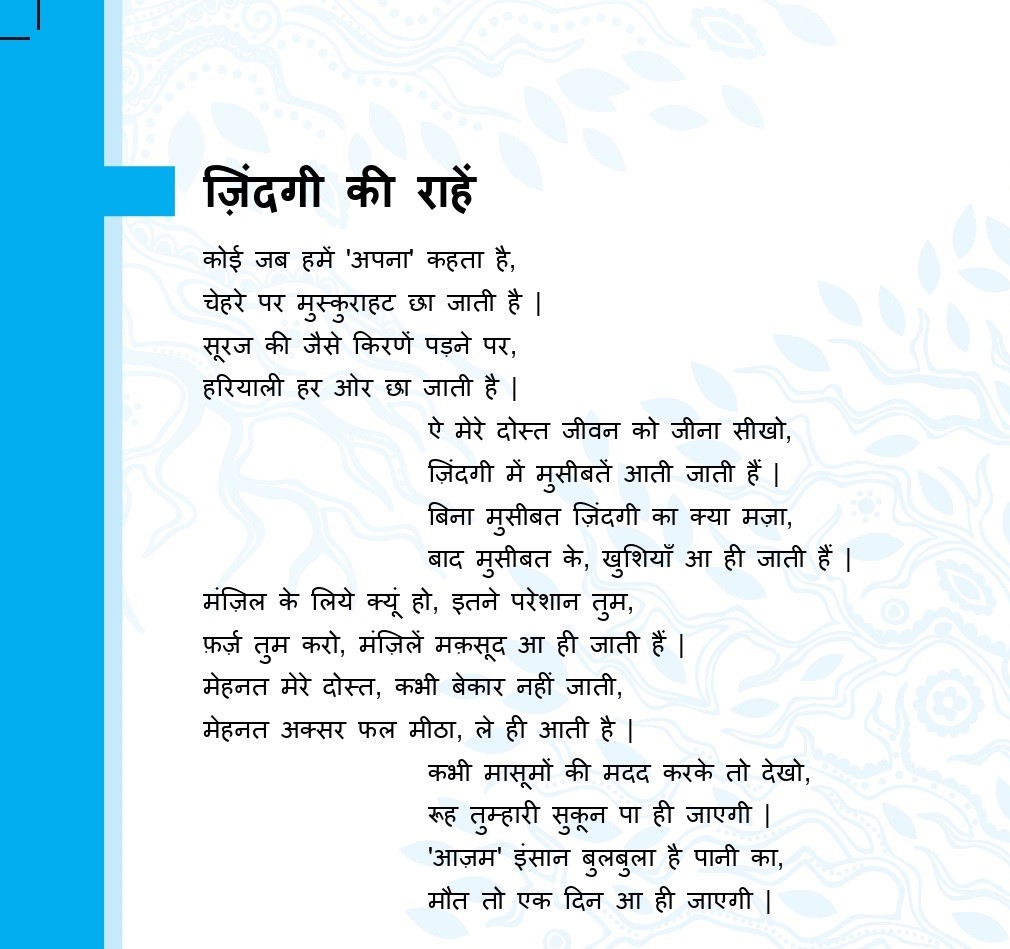 ज़िंदगी की राहें
कोई जब हमें 'अपना' कहता है,
चेहरे पर मुस्कुराहट छा जाती है |
सूरज की जैसे किरणें पड़ने पर,
हरियाली हर ओर छा जाती है |
ऐ मेरे दोस्त जीवन को जीना सीखो,
ज़िंदगी में मुसीबतें आती जाती हैं |
बिना मुसीबत ज़िंदगी का क्या मज़ा,
बाद मुसीबत के, खुशियाँ आ ही जाती हैं |
मंज़िल के लिये क्यूं हो, इतने परेशान तुम,
फ़र्ज़ तुम करो, मंज़िलें मक़सूद आ ही जाती हैं |
मेहनत मेरे दोस्त, कभी बेकार नहीं जाती,
मेहनत अक्सर फल मीठा, ले ही आती है |
कभी मासूमों की मदद करके तो देखो,
रूह तुम्हारी सुकून पा ही जाएगी |
'आज़म' इंसान बुलबुला है पानी का,
मौत तो एक दिन आ ही जाएगी |